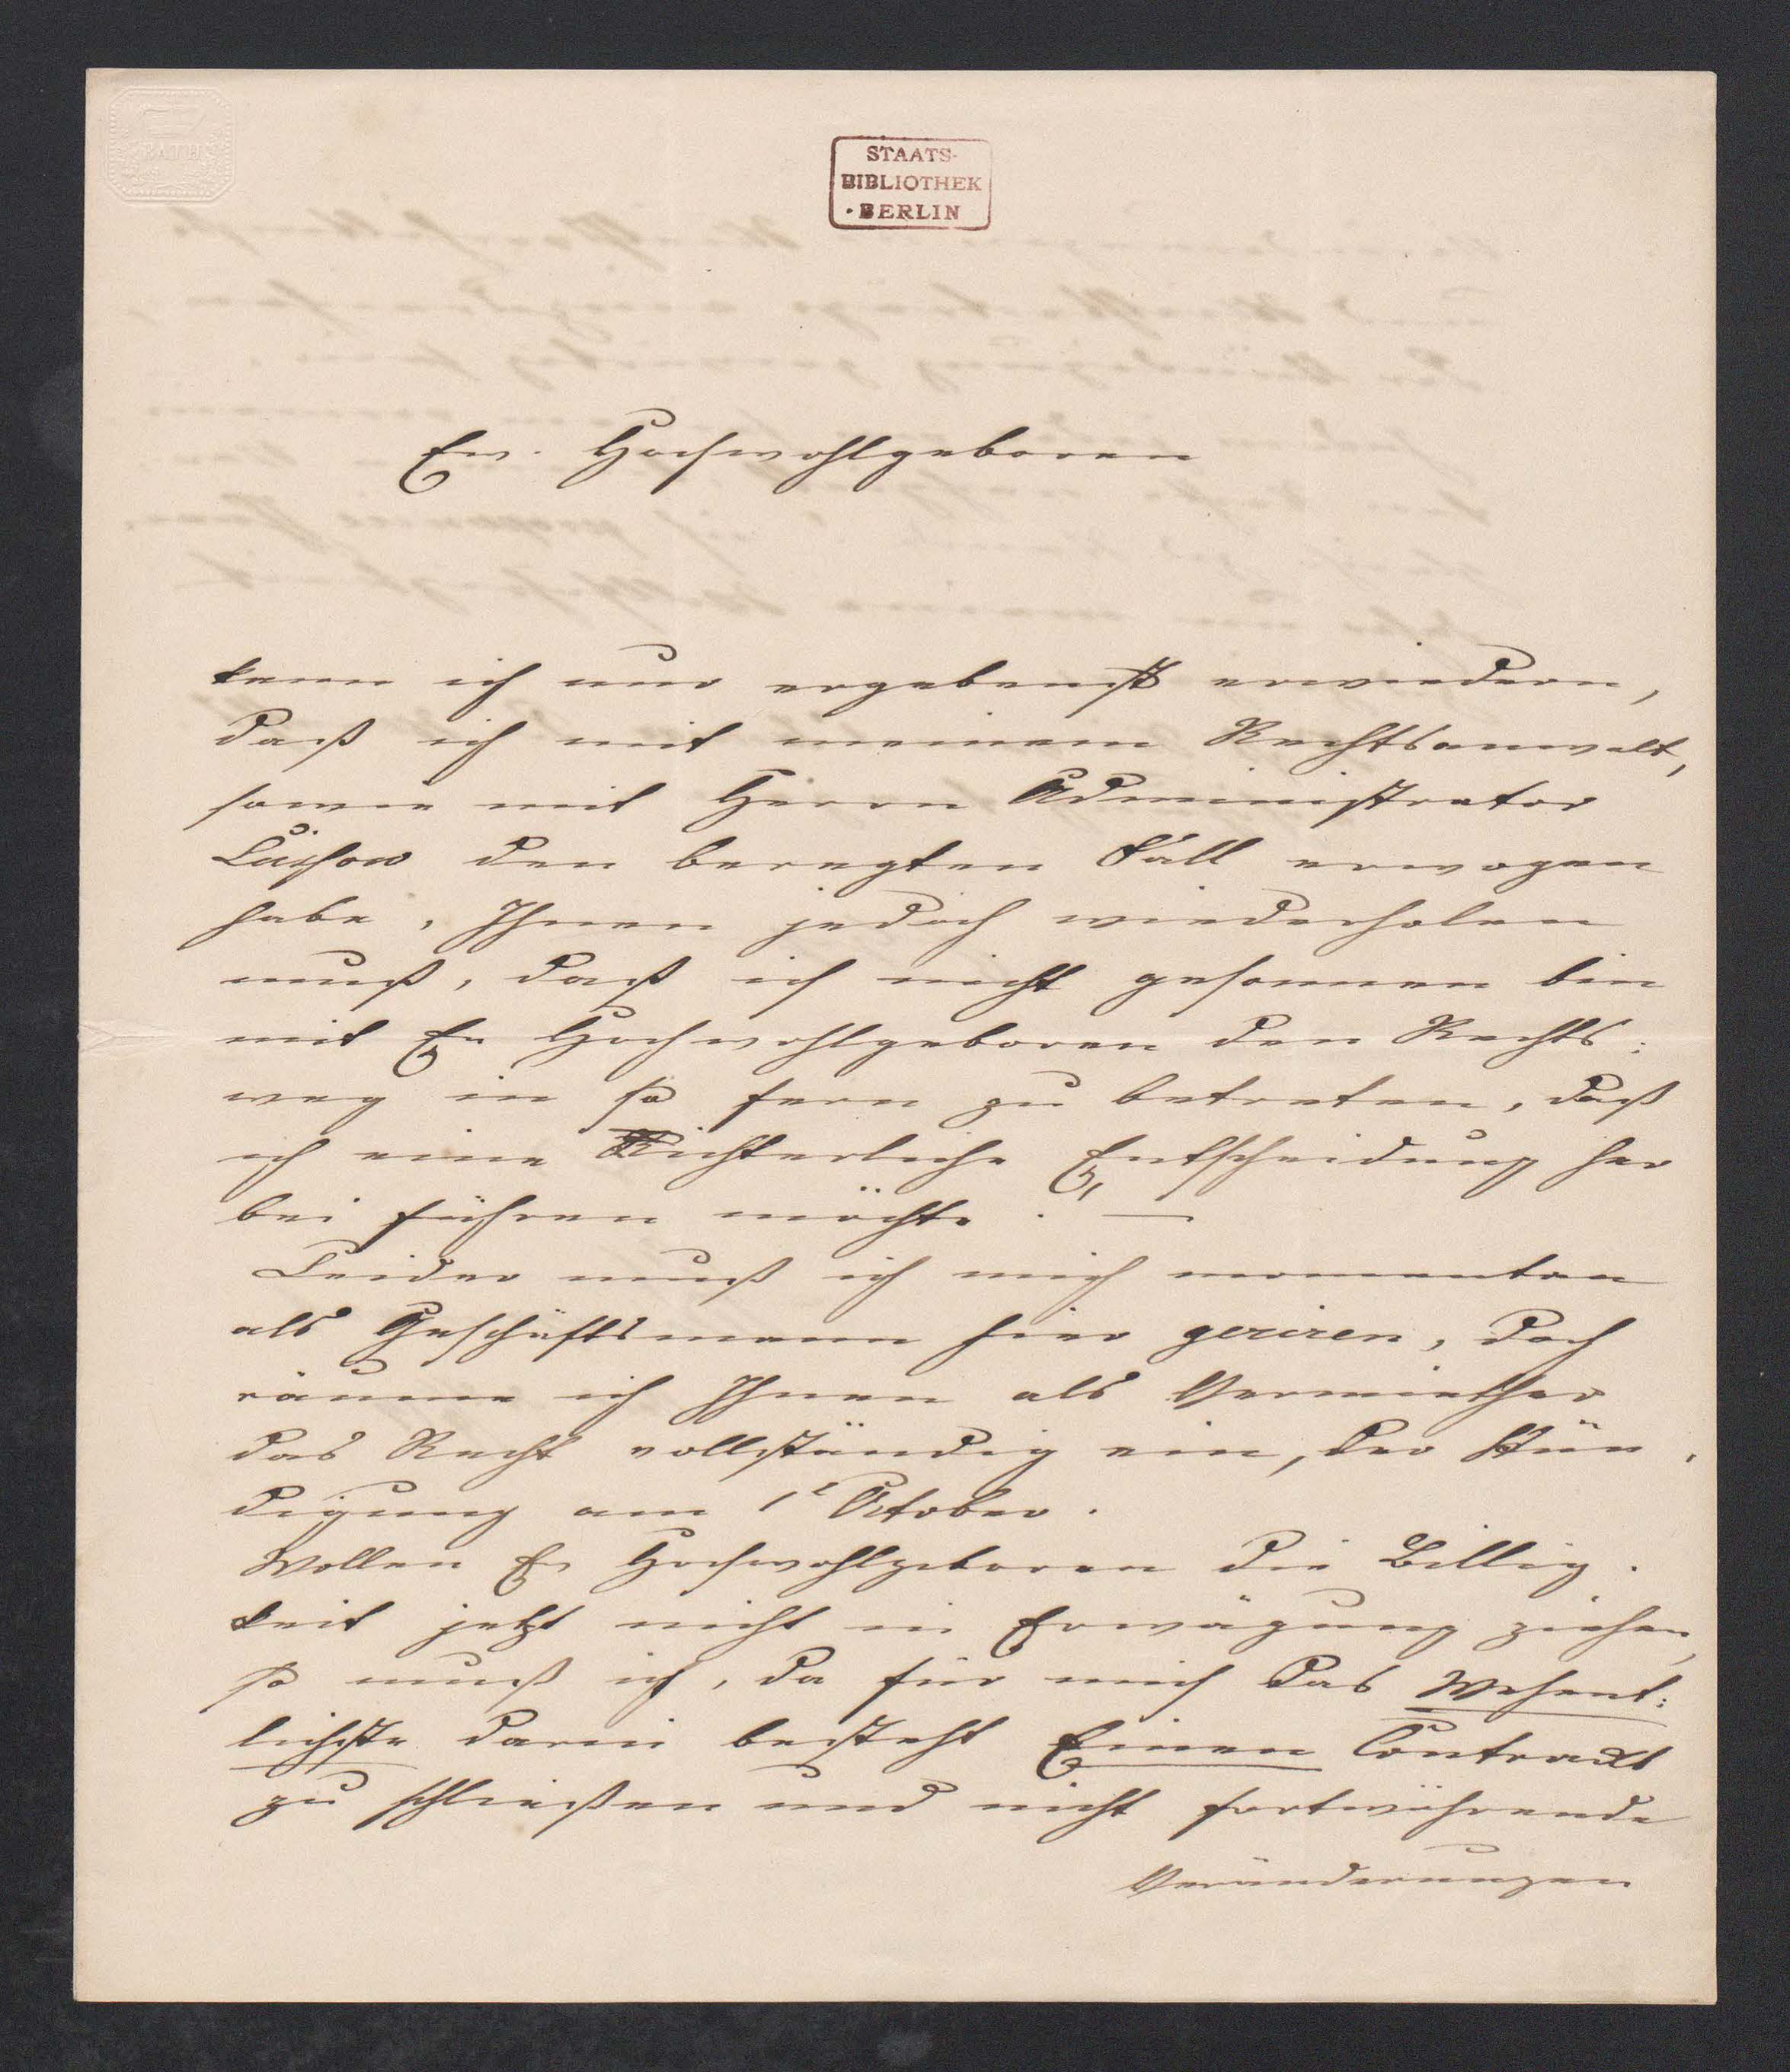 BATH
STAATS-
BIBLIOTHEK
• BERLIN
Ew. Hochwohlgeboren
kann ich nur ergebenst erwiedern,
daß ich mit meinem Rechtsanwalt,
sowie mit Herrn Administrator
den beregten Fall erwogen
habe, Ihnen jedoch wiederholen
muß, daß ich nicht gesonnen bin
mit Ew Hochwohlgeboren den Rechts:
weg in so fern zu betreten, daß
ich eine Richterliche Entscheidung her
bei führen möchte. —
Leider muß ich mich momentan
als Geschäftsmann hier geriren, doch
räume ich Ihnen als Vermiether
das Recht vollständig ein, der Kün-
digung am 1t October.
Wollen Ew Hochwohlgeboren die Billig-
keit jetzt nicht in Erwägung ziehen,
so muß ich, da für mich das Wesent:
lichste darin besteht Einen Contract
zu schließen und nicht fortwährende
Veränderungen